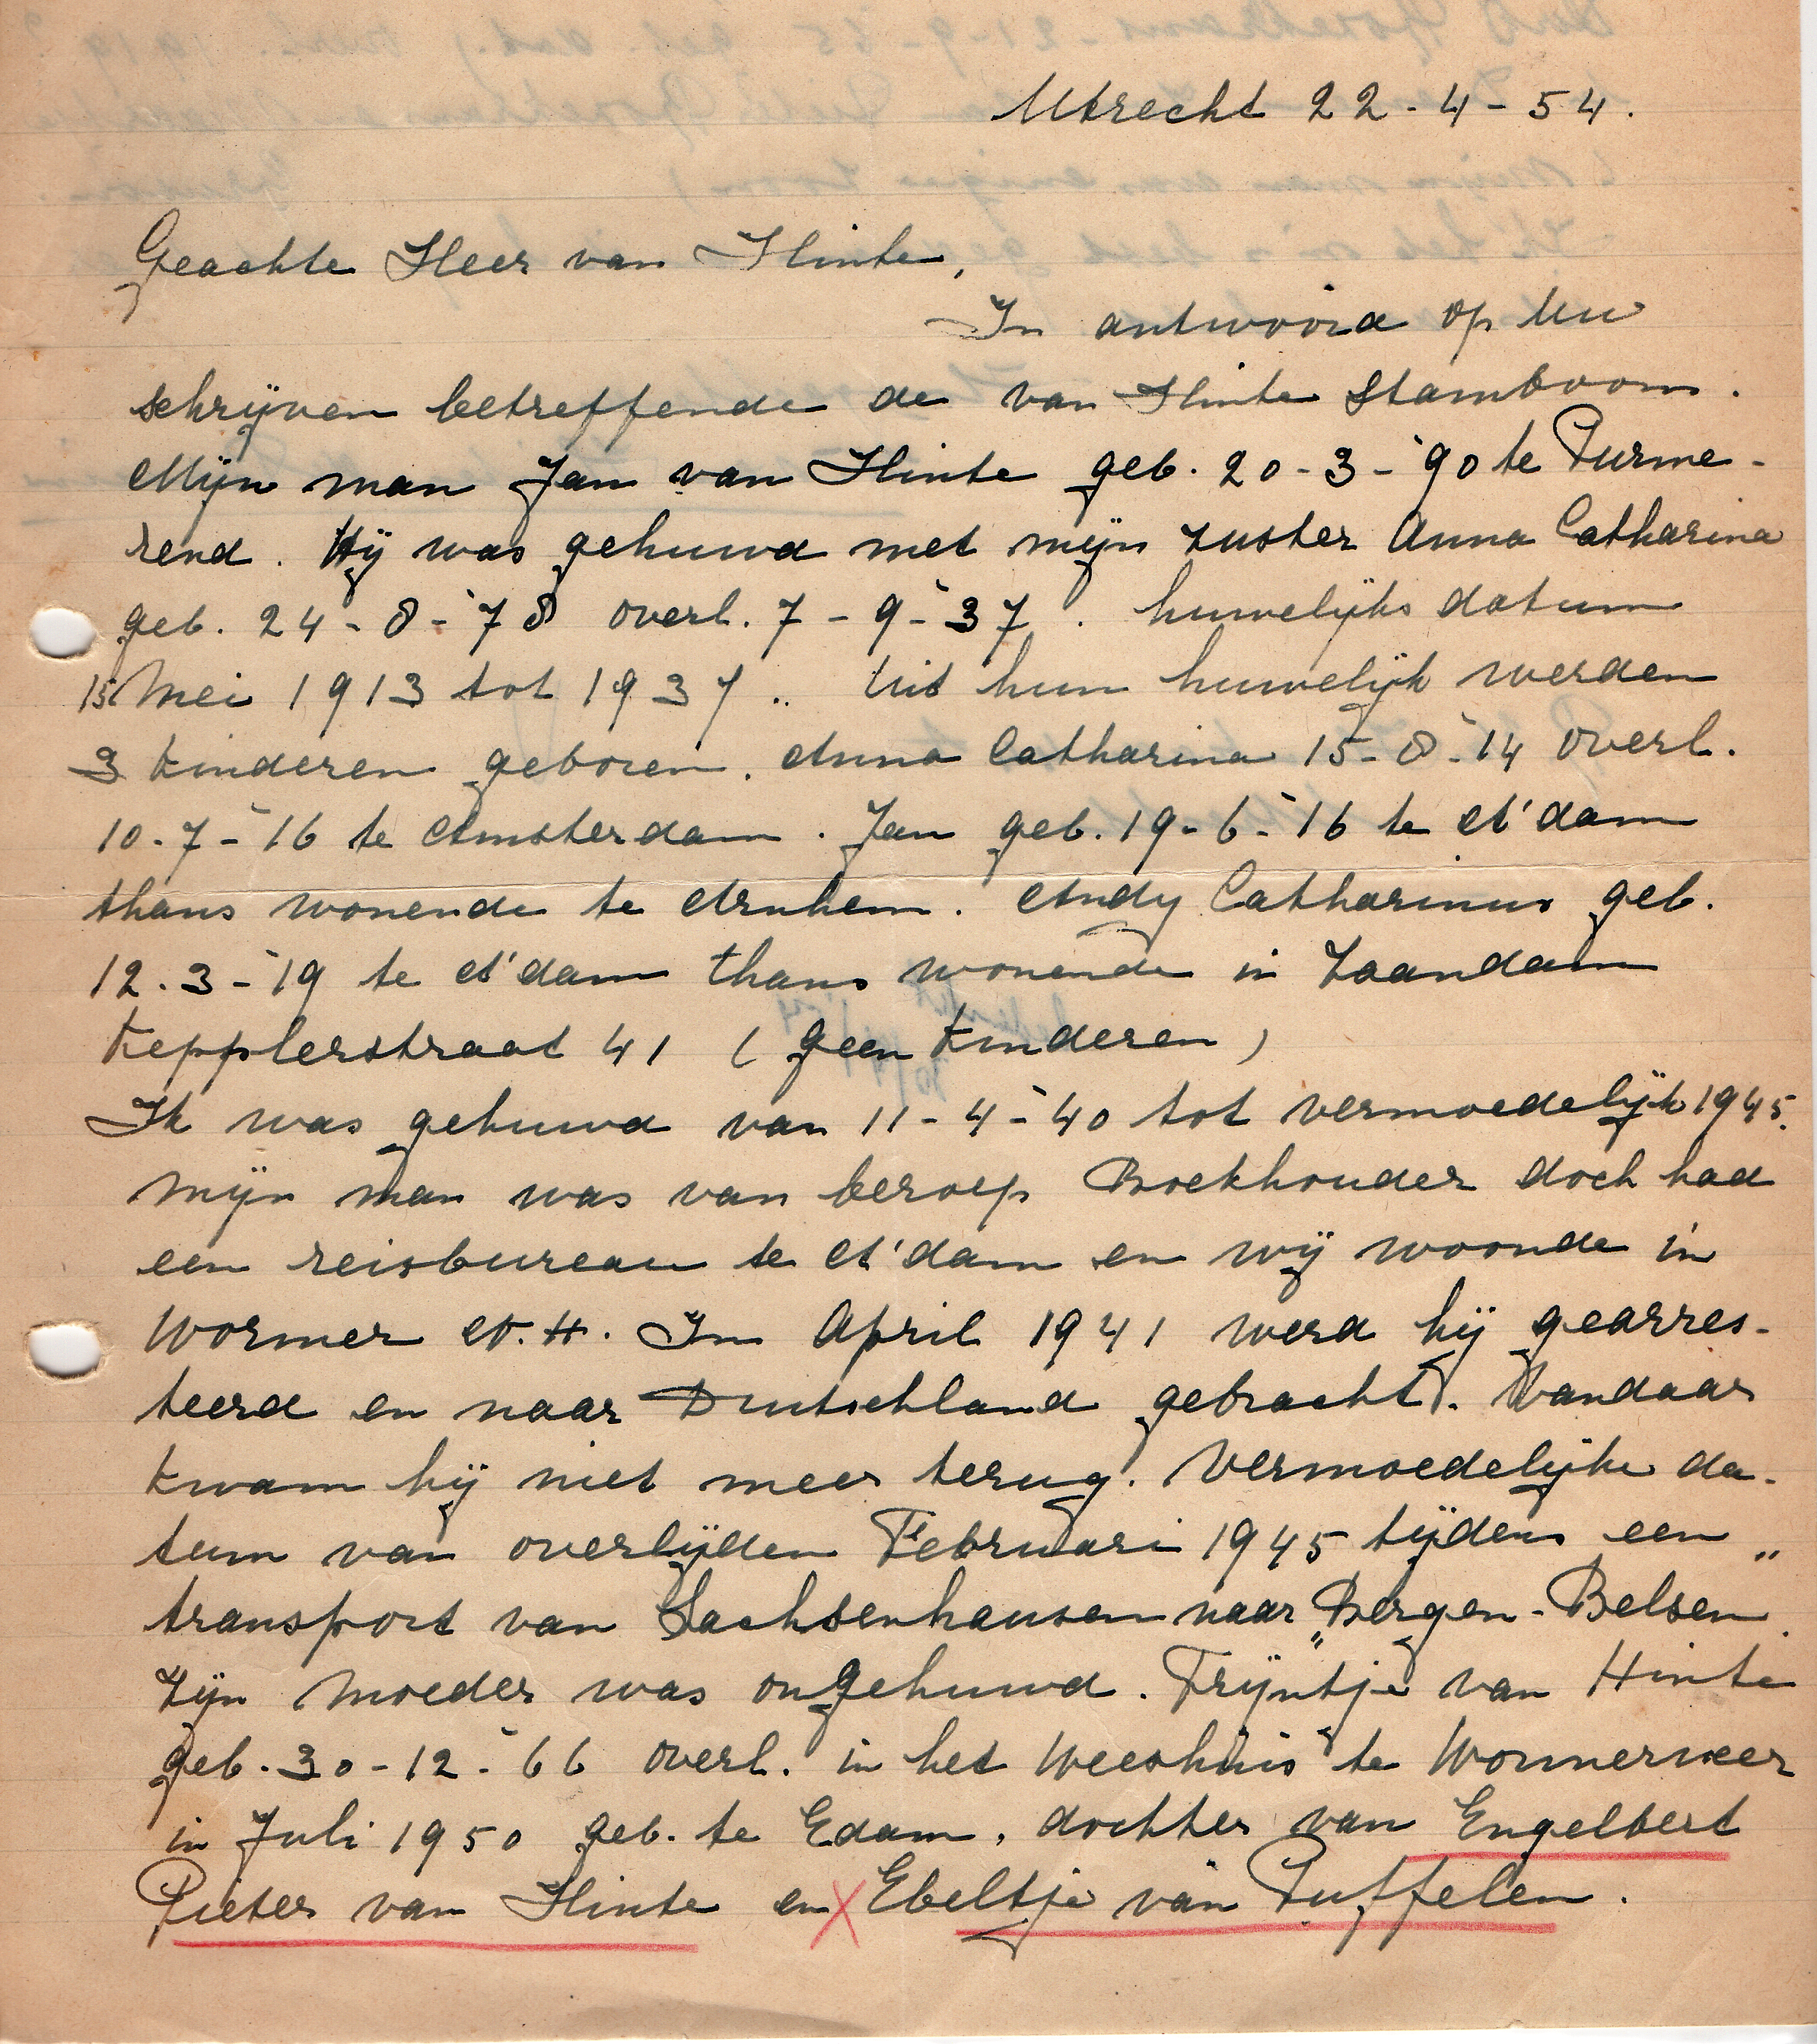 Utrecht 22-4-54.
Geachte Heer van Hinte,
In antwoord op Uw
schrijven betreffende de van Hinte Stamboom.
Mijn man Jan van Hinte geb. 20-3-'90 te Purme-
rend. Hij was gehuwd met mijn zuster Anna Catharina
geb. 24-8-'78 overl. 7-9-'37. huwelijks datum
15 Mei 1913 tot 1937.. Uit hun huwelijk werden
3 kinderen geboren. Anna Catharina 15-8-'14 overl.
10-7-'16 te Amsterdam. Jan geb. 19-6-'16 te A'dam
thans wonende te Arnhem. Andy Catharinus geb.
12.3-'19 te A'dam thans wonende in Zaandam
Kepplerstraat 41 (geen kinderen)
Ik was gehuwd van 11-4-'40 tot vermoedelijk 1945.
mijn man was van beroep Boekhouder doch had
een reisbureau te A'dam en wij woonde in
Wormer N.H. In April 1941 werd hij gearres-
teerd en naar Deutschland gebracht. Vandaar
kwam hij niet meer terug. Vermoedelijke da-
tum van overlijden Februari 1945 tijdens een
transport van Sachsenhausen naar „Bergen-Belsen".
Zijn Moeder was ongehuwd. Trijntje van Hinte
geb. 30-12-'66 overl. in het Weeshuis te Wormerveer
in Juli 1950 geb. te Edam, dochter van Engelbert
Pieter van Hinte en X Ebeltje van Puffelen.